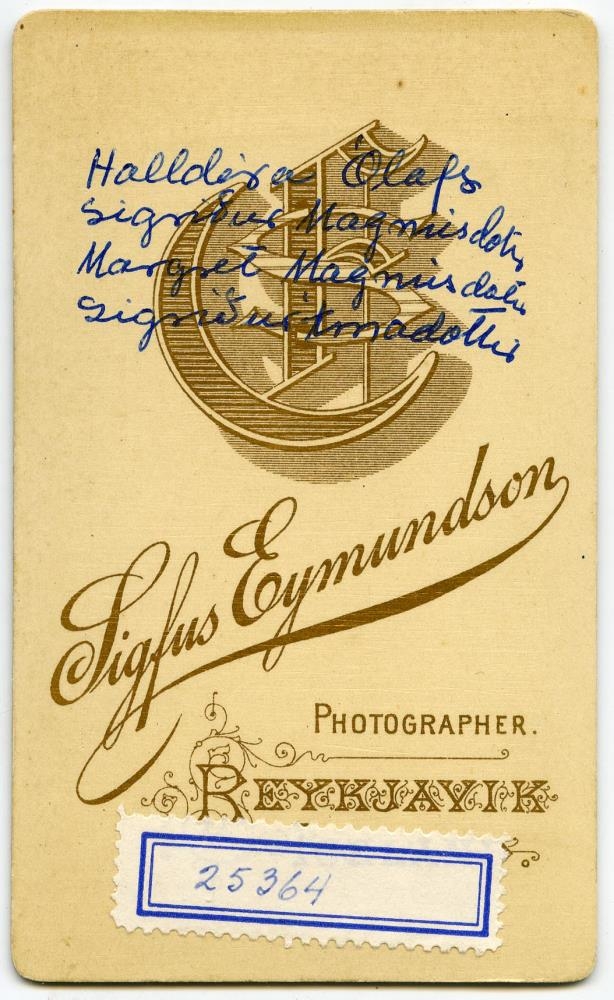 Halldóra Ólafs
Sigriður Magnusdottir
Margret Magnusdottir
Sigriður
Sigfus Eymundson
PHOTOGRAPHER.
REYKJAVIK
25364